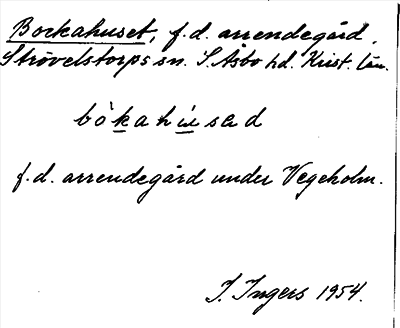 Bockahuset, f.d. arrendegård,
Strövelstorps sn. S. Åsbo hd. Krist. län.
bòkahúsəd
f.d. arrendegård under Vegeholm.
I. Ingers 1954.